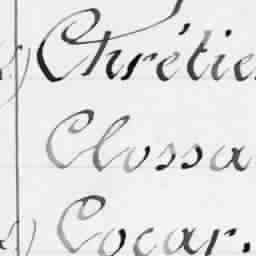 Chrétie
Clossa
Cocar.